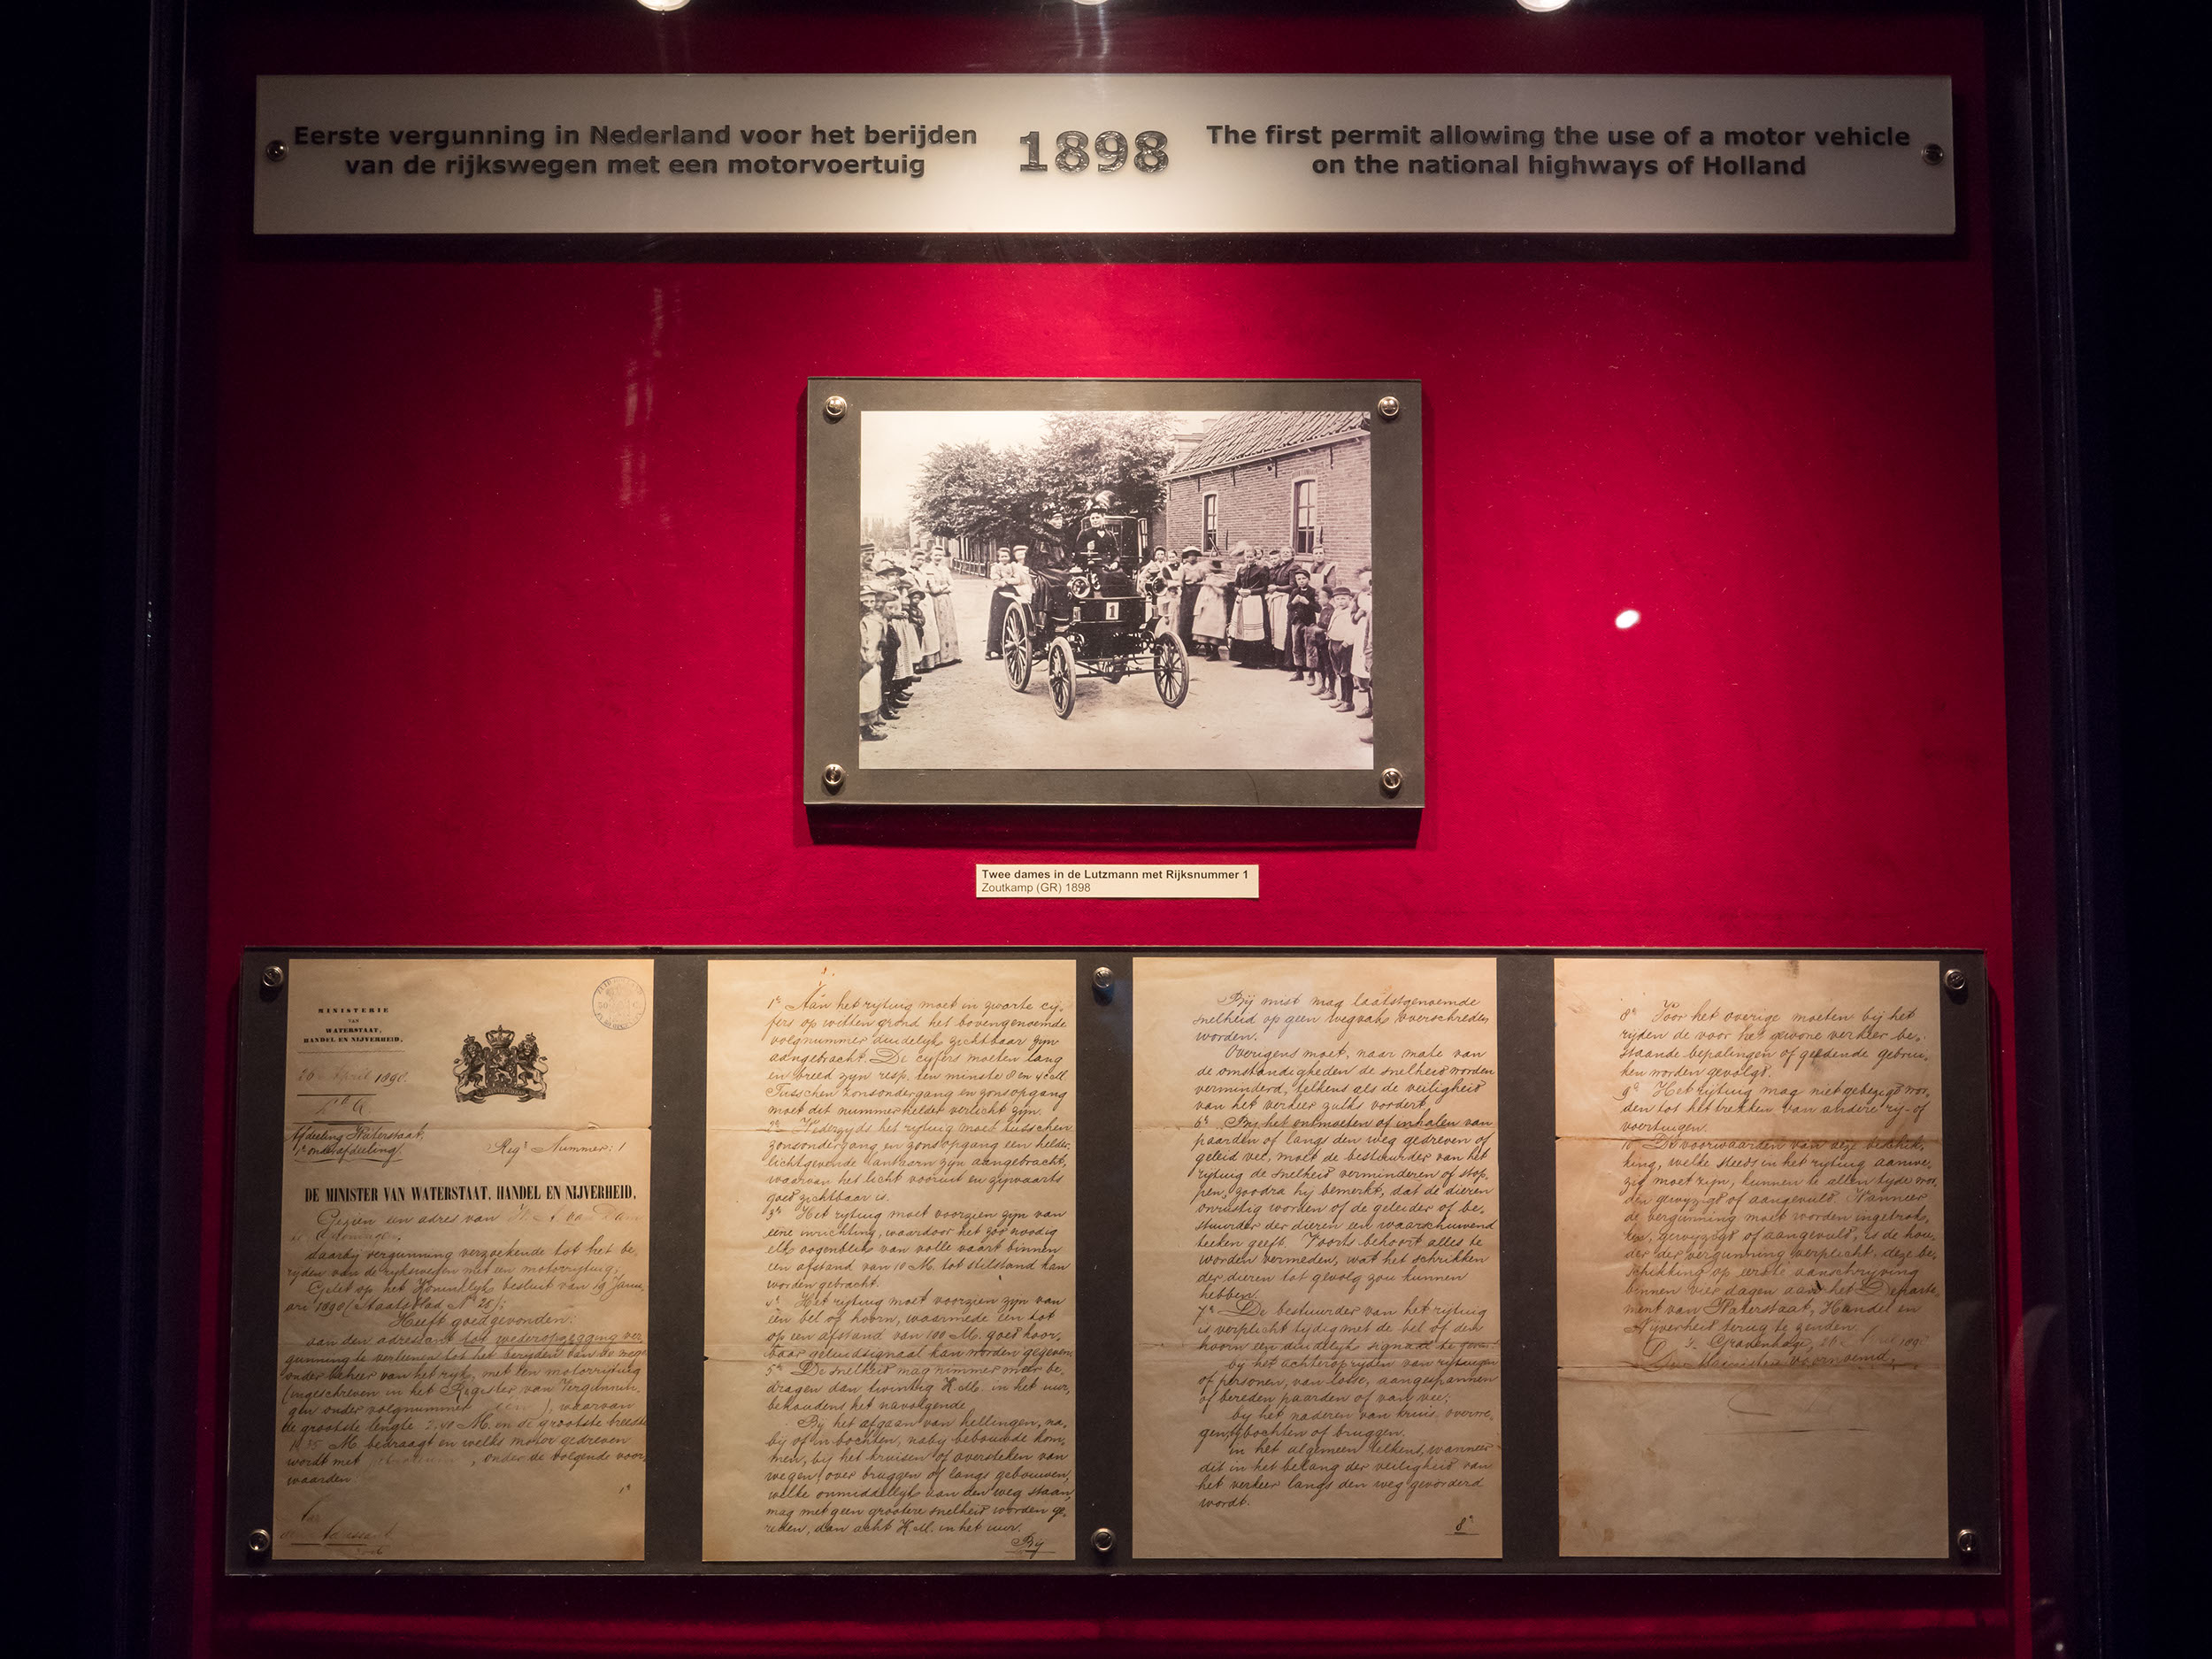 Eerste vergunning in Nederland voor het berijden
van de rijkswegen met een motorvoertuig
1898
The first permit allowing the use of a motor vehicle
on the national highways of Holland
1
Twee dames in de Lutzmann met Rijksnummer 1
Zoutkamp (GR) 1898
MINISTERIE
VAN
WATERSTAAT,
HANDEL EN NIJVERHEID.
26 April 1898.
Afdeeling Waterstaat.
1e onderafdeeling.
Regr Nummer: 1
DE MINISTER VAN WATERSTAAT, HANDEL EN NIJVERHEID,
Gezien een adres van
daarbij vergunning verzoekende tot het be-
rijden van de rijkswegen met een motorrijtuig;
Gelet op het Koninklijk besluit van 19 Janu-
ari 1898 (Staatsblad No 28);
Heeft goedgevonden:
aan den adressant tot wederopzegging ver-
gunning te verleenen tot het berijden van de wegen
onder beheer van het rijk, met een motorrijtuig
(ingeschreven in het Register van Vergunnin-
gen onder volgnummer een), waarvan
de grootste lengte M. en de grootste breedte
M. bedraagt en welks motor gedreven
wordt met , onder de volgende voor-
waarden
1e
1e Aan het rijtuig moet in zwarte cij-
fers op witten grond het bovengenoemde
volgnummer duidelijk zichtbaar zijn
aangebracht. De cijfers moeten lang
en breed zijn resp. ten minste 8 en 4 cM.
Tusschen zonsondergang en zonsopgang
moet dit nummer helder verlicht zijn.
2e Wederzijds het rijtuig moet tusschen
zonsondergang en zonsopgang een helder
lichtgevende lantaarn zijn aangebracht,
waarvan het licht vooruit en zijwaarts
goed zichtbaar is.
3e Het rijtuig moet voorzien zijn van
eene inrichting, waardoor het zoo noodig
elk oogenblik van volle vaart binnen
een afstand van 10 M. tot stilstand kan
worden gebracht.
4e Het rijtuig moet voorzien zijn van
een bel of hoorn, waarmede een tot
op een afstand van 100 M. goed hoor-
baar geluidsignaal kan worden gegeven.
5e De snelheid mag nimmer meer be-
dragen dan twintig K.M. in het uur,
behoudens het navolgende
Bij het afgaan van hellingen, na-
bij of in bochten, nabij bebouwde kom-
men, bij het kruisen of oversteken van
wegen, over bruggen of langs gebouwen,
welke onmiddellijk aan den weg staan,
mag met geen grootere snelheid worden ge-
reden, dan acht K.M. in het uur.
Bij
Bij mist mag laatstgenoemde
snelheid op geen wegvak overschreden
worden.
Overigens moet, naar mate van
de omstandigheden de snelheid worden
verminderd, telkens als de veiligheid
van het verkeer zulks vordert.
6e Bij het ontmoeten of inhalen van
paarden of langs den weg gedreven of
geleid vee, moet de bestuurder van het
rijtuig de snelheid verminderen of stop-
pen, zoodra hij bemerkt, dat de dieren
onrustig worden of de geleider of be-
stuurder der dieren een waarschuwend
teeken geeft. Voorts behoort alles te
worden vermeden, wat het schrikken
der dieren tot gevolg zou kunnen
hebben.
7e De bestuurder van het rijtuig
is verplicht tijdig met de bel of den
hoorn een duidelijk signaal te geven:
bij het achteroprijden van rijtuigen
of personen, van losse, aangespannen
of bereden paarden of van vee;
bij het naderen van kruis, overwe-
gen, bochten of bruggen.
in het algemeen telkens, wanneer
dit in het belang der veiligheid van
het verkeer langs den weg gevorderd
wordt.
8e
8e Voor het overige moeten bij het
rijden de voor het gewone verkeer be-
staande bepalingen of geldende gebrui-
ken worden gevolgd.
9e Het rijtuig mag niet gebezigd wor-
den tot het trekken van andere rij- of
voertuigen.
De voorwaarden van deze beschik-
king, welke steeds in het rijtuig aanwe-
zig moet zijn, kunnen te allen tijde wor-
den gewijzigd of aangevuld. Wanneer
de vergunning moet worden ingetrok-
ken, gewijzigd of aangevuld, is de hou-
der der vergunning verplicht, deze be-
schikking op eerste aanschrijving
binnen vier dagen aan het Departe-
ment van Waterstaat, Handel en
Nijverheid terug te zenden.
's Gravenhage,
De Minister voornoemd,